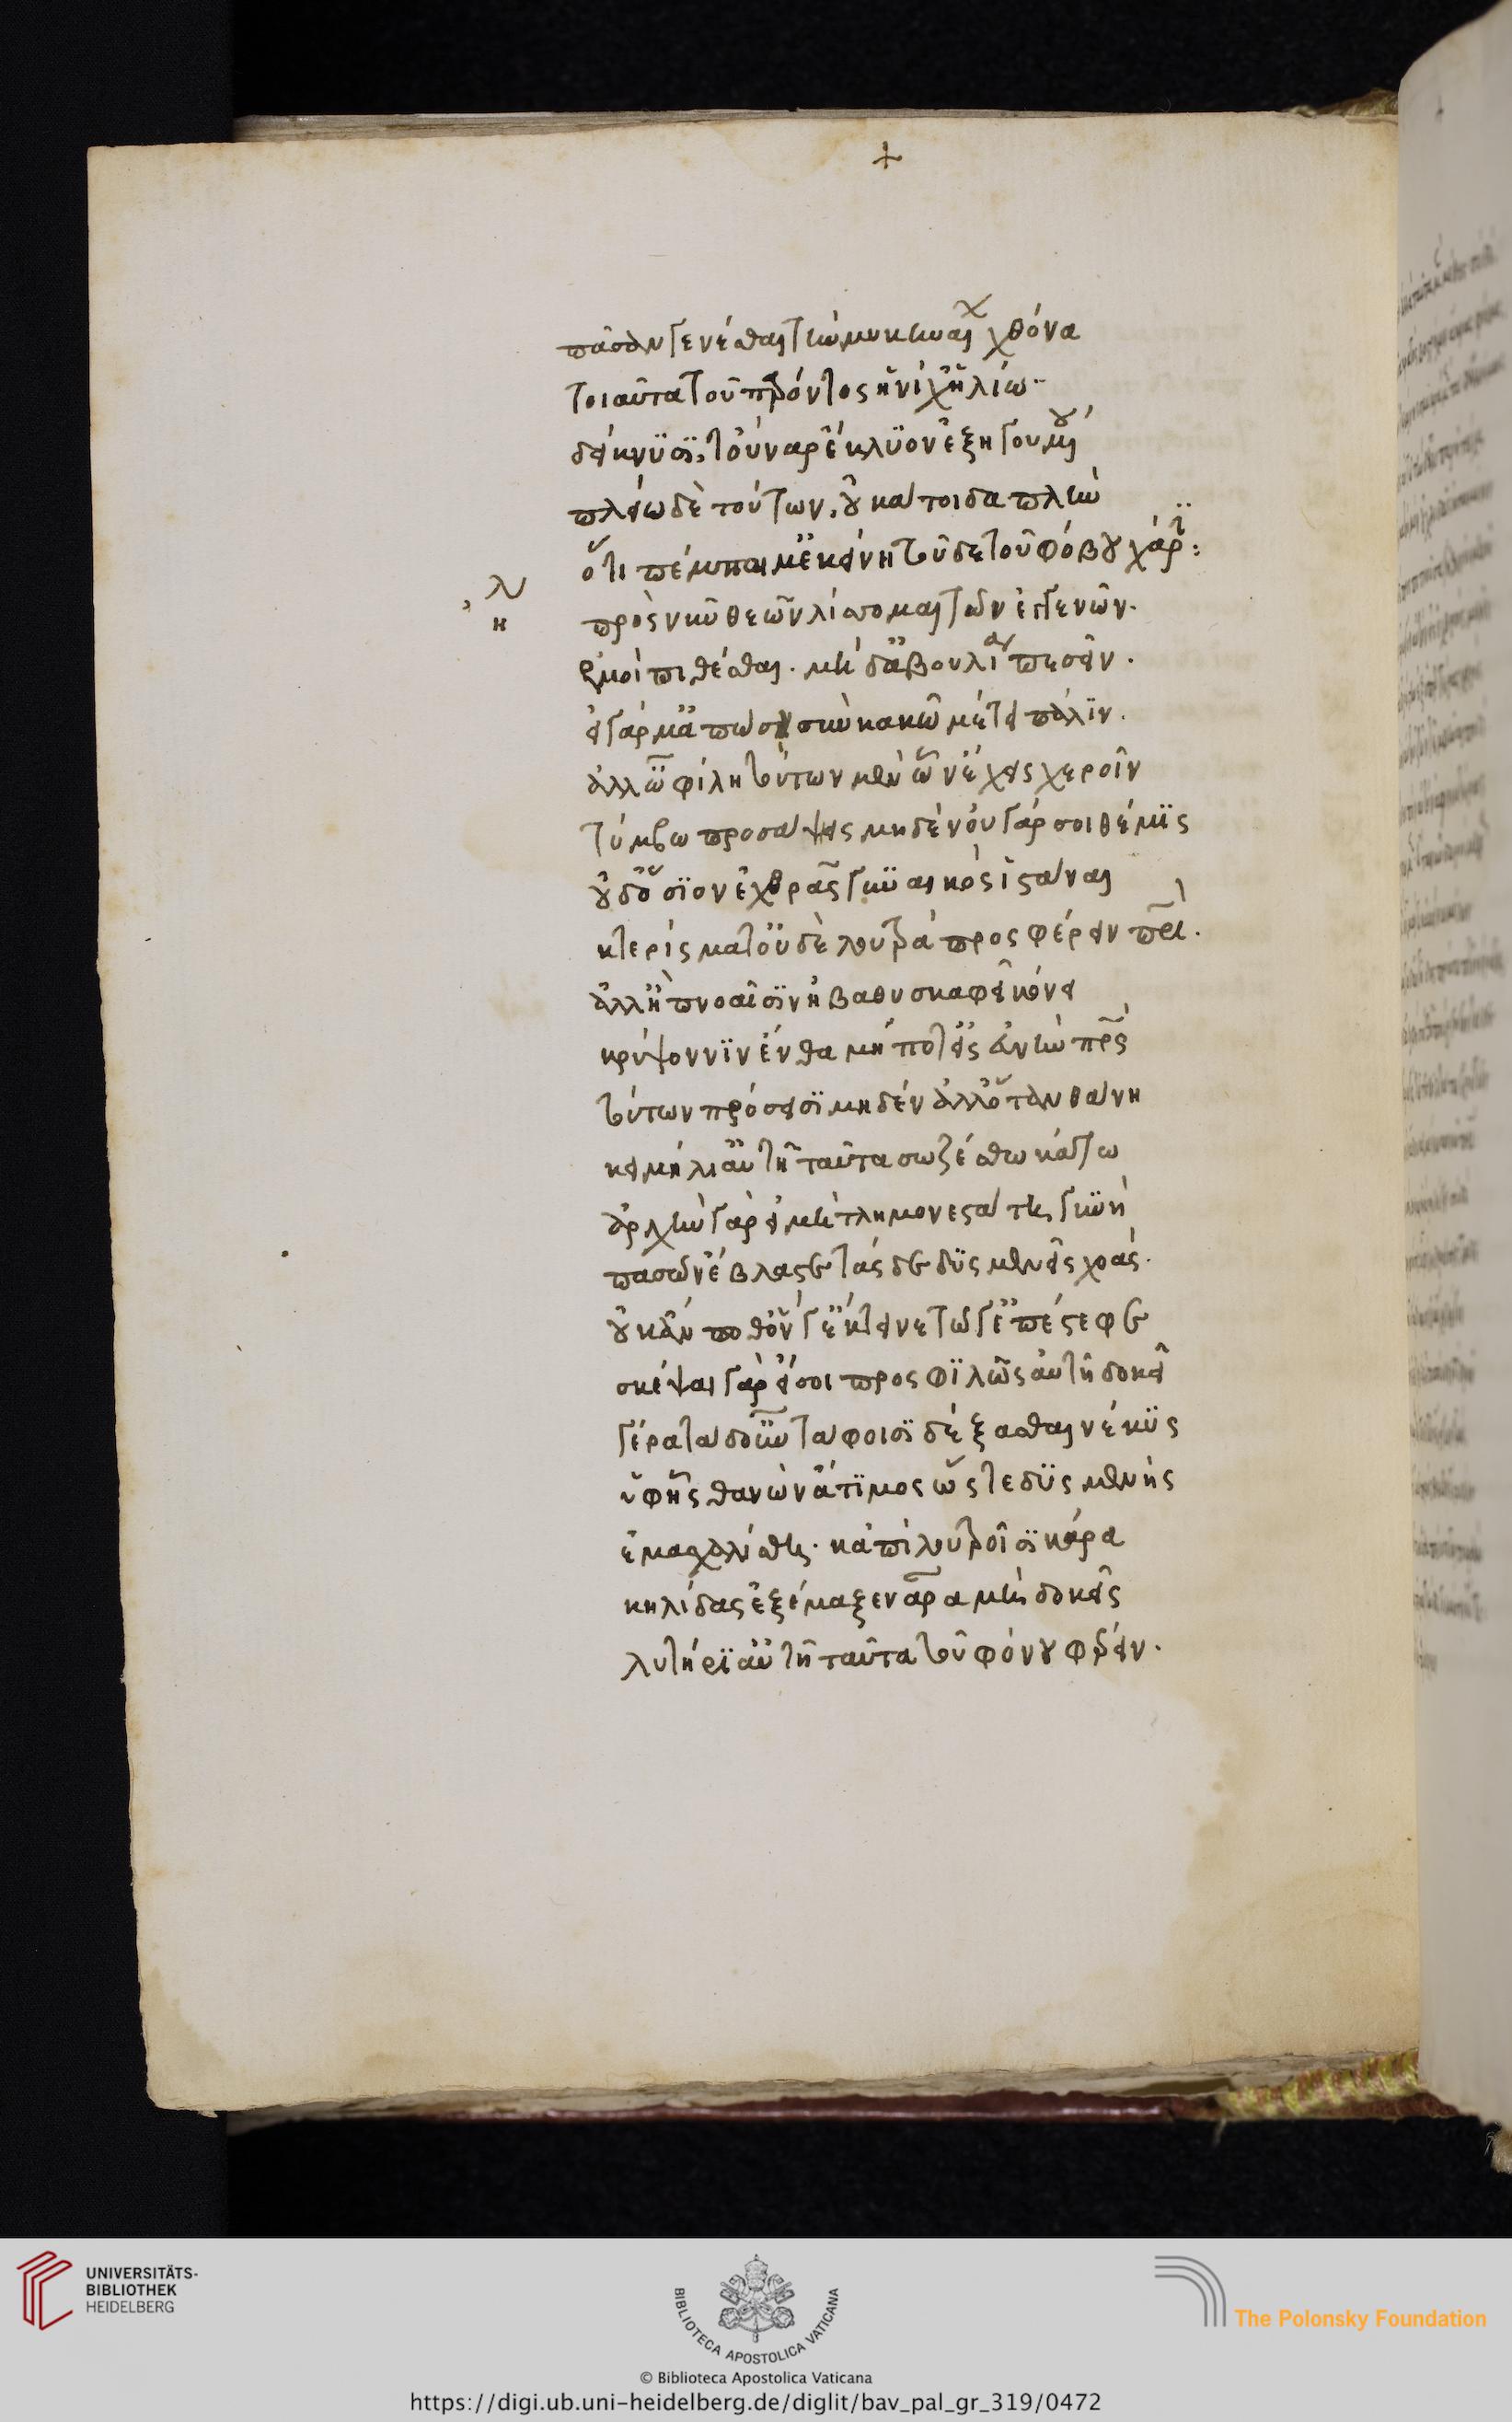 +
πᾶσαν γενέσθαι τὴν μυκηναίων χθόνα
τοιαῦτα τοῦ παρόντος ἡνίχ' ἡλίω
δείκνυσι τοὔναρ ἔκλυον ἐξηγουμένου
πλείω δὲ τούτων, οὐ κάτοιδα πλὴν
ὅτι πέμπει μ' ἐκείνη τοῦδε τοῦ φόβου χάριν:
ηλ
πρὸς νῦν θεῶν λίσσομαι τῶν ἐγγενῶν.
ἐμοὶ πιθέσθαι. μὴ δ' ἀβουλία πεσεῖν.
εἰ γάρ μ' ἀπώση σὺν κακῶ μέτει πάλιν.
ἀλλ' ὦ φίλη τούτων μὲν ὧν ἔχεις χεροῖν
τύμβω προσάψης μηδὲν οὐ γάρ σοι θέμις
οὐδ' ὅσιον ἐχθρᾶς γυναικὸς ἱστάναι
κτερίσματ' οὐδὲ λουτρὰ προσφέρειν πρί.
ἀλλ' ἢ πνοαῖσιν ἢ βαθυσκαφεῖ κόνει
κρύψον νιν ἔνθα μή ποτ' εἰς εὐνὴν πρς
τούτων πρόσεισι μηδέν ἀλλ' ὅταν θάνη
κειμήλι' αὐτῆ ταῦτα σωζέσθω κάτω
ἀρχὴν γὰρ εἰ μὴ τλημονεστάτη γυνὴ
πασῶν ἔβλαστε τάσδε δυσμενεῖς χοάς.
οὐκ ἄν ποθ' ὅν γ' ἔκτεινε τῶ γ' ἐπέστεφε
σκέψαι γὰρ εἴ σοι προσφιλῶς αὐτῆ δοκεῖ
γέρα τάδ' οὖν τάφοισι δέξασθαι νέκυς
ὑφ' ἧς θανὼν ἄτιμος ὥστε δυσμενὴς
ἐμασχαλίσθη. κἀπὶ λουτροῖσι κάρα
κηλίδας ἐξέμαξεν ἆρα μὴ δοκεῖς
λυτήρι' αὐτῆ ταῦτα τοῦ φόνου φέρειν.
UNIVERSITÄTS-
BIBLIOTHEK
HEIDELBERG
BIBLIOTECA APOSTOLICA VATICANA
The Polonsky Foundation
© Biblioteca Apostolica Vaticana
https://digi.ub.uni-heidelberg.de/diglit/bav_pal_gr_319/0472